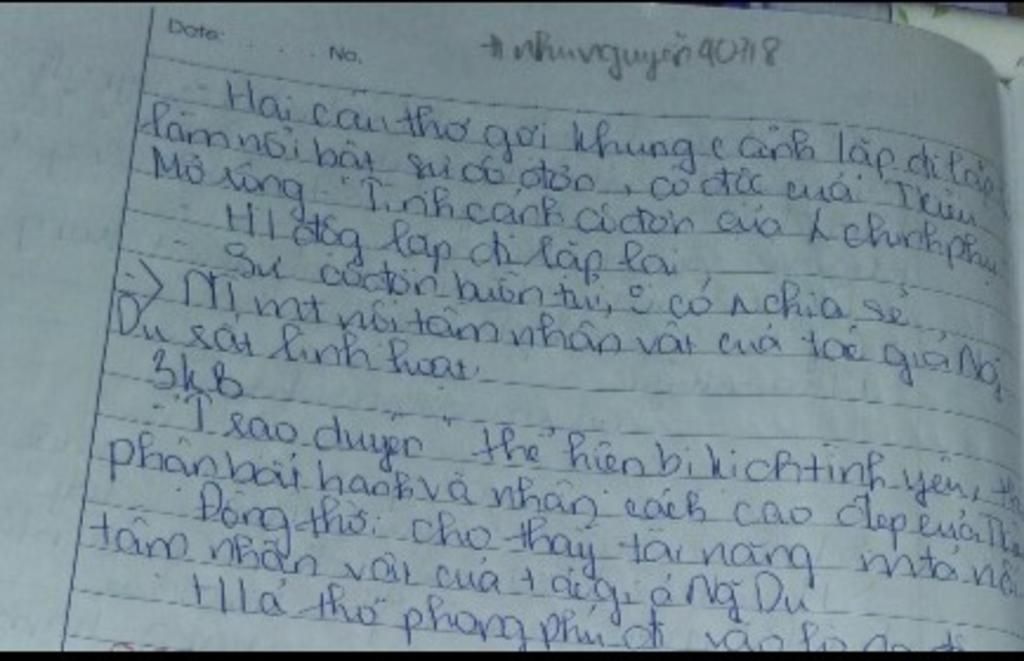 Date: No. #nhunguyễn40718
- Hai câu thơ gợi khung cảnh lặp đi lặp
làm nổi bật sự cô đơn, cô độc của Thúy
Mở rộng: Tình cảnh cô đơn của chinh phụ
- Hđộg lặp đi lặp lại
- Sự cô đơn buồn tủi, có chia sẻ
=> mt nội tâm nhân vật của tác giả Ng
Du sát linh hoạt.
3kB
- "Trao duyên" thể hiện bi kịch tình yêu,
phận bất hạnh và nhân cách cao đẹp của
Đồng thời cho thấy tài năng mtả nội
tâm nhân vật của tác giả Ng Du
thơ phong phú đi vào